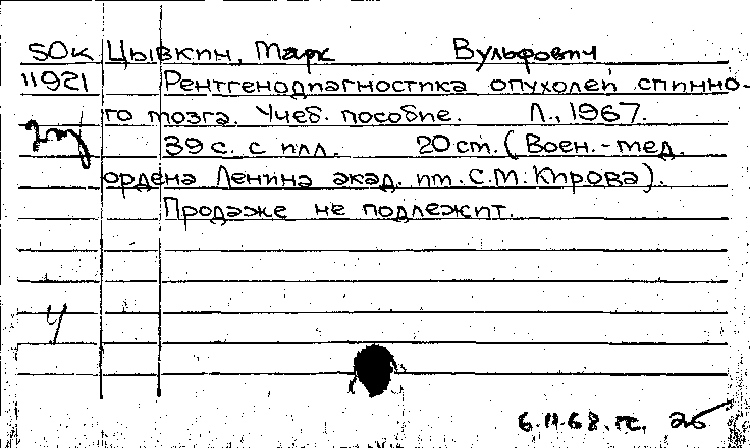 SOK Цывкин, Марк Вульфович
11921 Рентгенодиагностика опухолей спинно-
го мозга. Учеб. пособие. Л., 1967.
39 с. с илл. 20 см. (Воен.-мед.
ордена Ленина акад. им. С.М. Кирова).
Продаже не подлежит.
Ч
6.11.68.